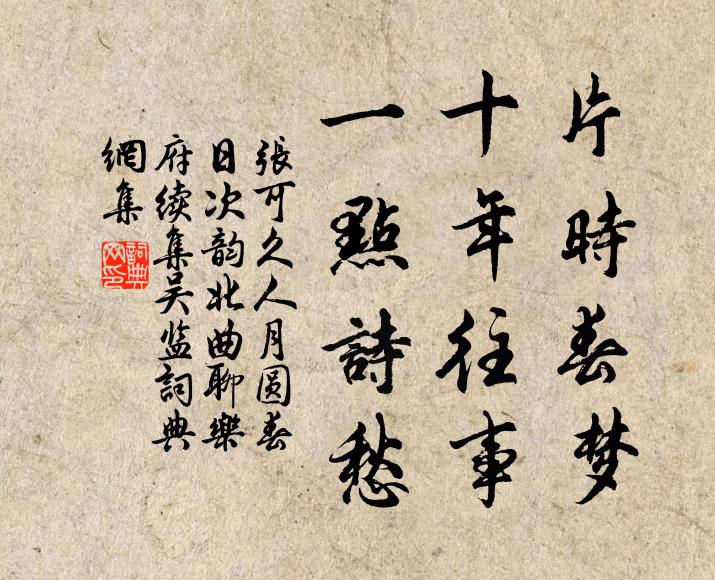 片時春梦
十年往事
一點詩愁
張可久人月圆春
日次韵北曲聊樂
府续集吴监詞典
網集
詞典網印